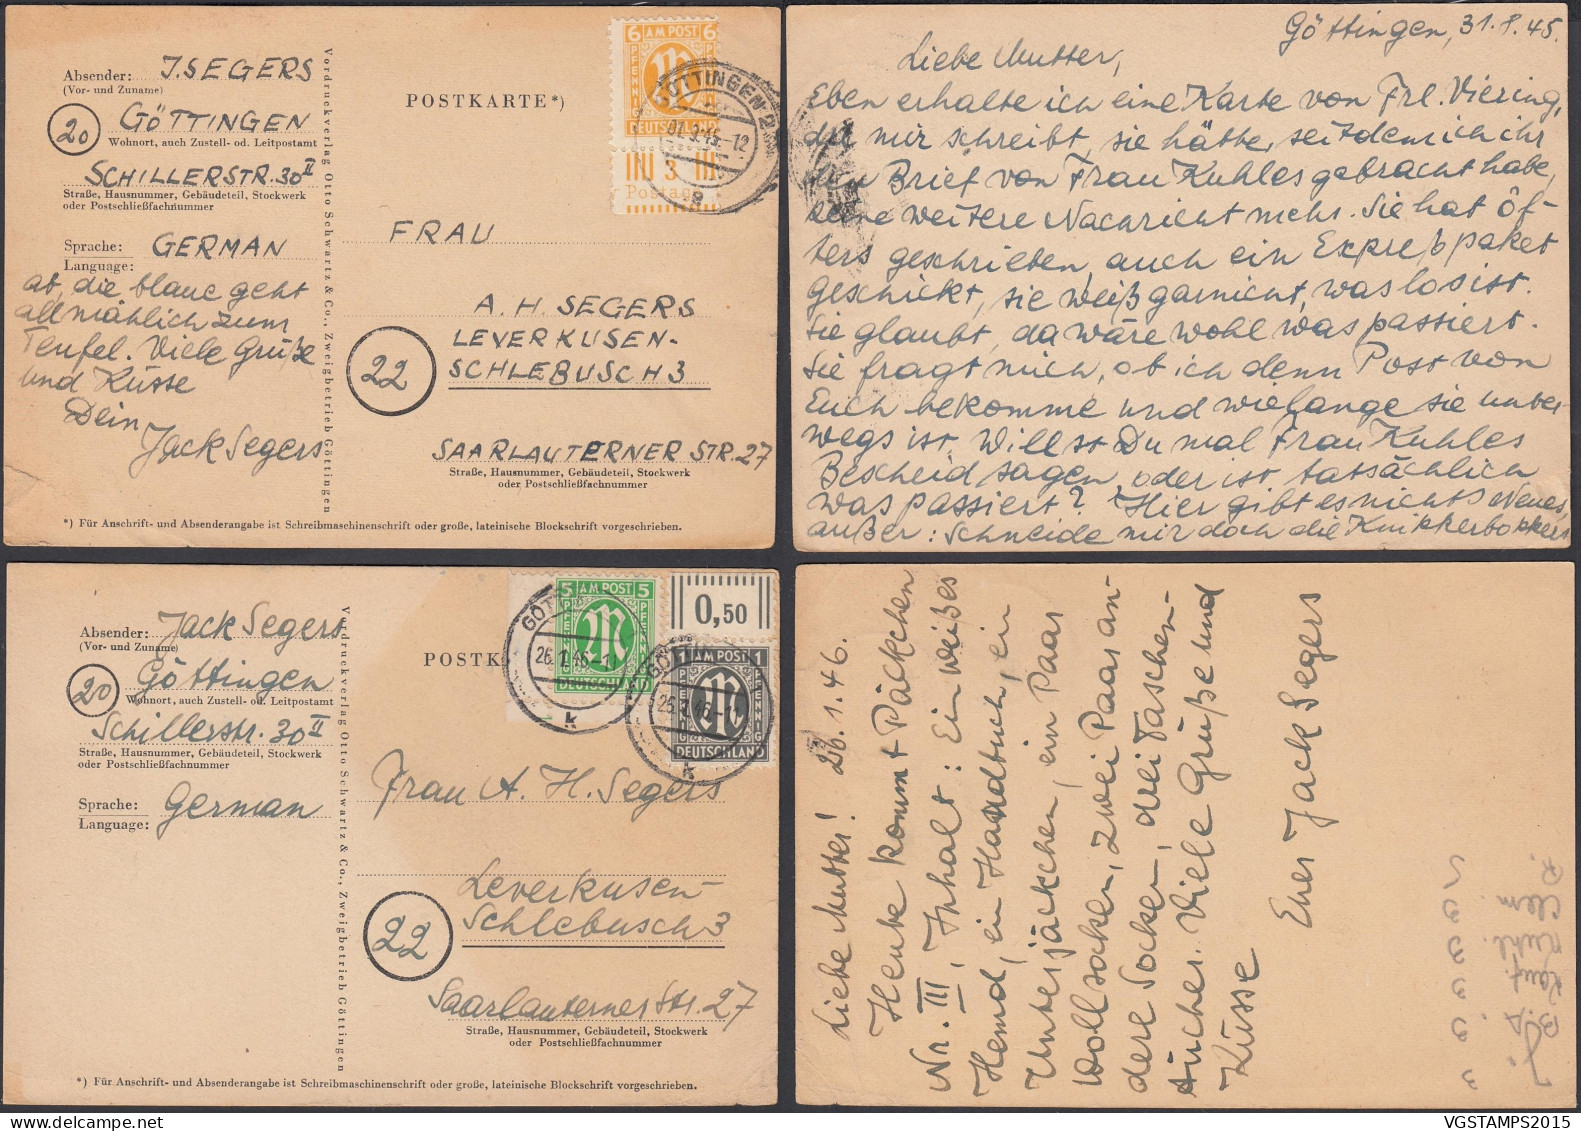 Absender: J. SEGERS
(Vor- und Zuname)
20 GÖTTINGEN
Wohnort, auch Zustell- od. Leitpostamt
SCHILLERSTR. 30 II
Straße, Hausnummer, Gebäudeteil, Stockwerk
oder Postschließfachnummer
Sprache: GERMAN
Language:
ab, die blaue geht
allmählich zum
Teufel. Viele Grüße
und Küsse
Dein
Jack Segers
Vordruckverlag Otto Schwartz & Co., Zweigbetrieb Göttingen
POSTKARTE*)
6 AM POST 6
PFENNIG PFENNIG
DEUTSCHLAND
3
Postage
GÖTTINGEN 2
FRAU
A. H. SEGERS
LEVERKUSEN-
22 SCHLEBUSCH 3
SAARLAUTERNER STR. 27
Straße, Hausnummer, Gebäudeteil, Stockwerk
oder Postschließfachnummer
*) Für Anschrift- und Absenderangabe ist Schreibmaschinenschrift oder große, lateinische Blockschrift vorgeschrieben.
Göttingen, 31.8.45.
Liebe Mutter,
Eben erhalte ich eine Karte von Frl. Viering,
die mir schreibt, sie hätte, seitdem ich ihr
den Brief von Frau Kuhles gebracht habe,
keine weitere Nachricht mehr. Sie hat öf-
ters geschrieben, auch ein Expreßpaket
geschickt, sie weiß garnicht, was los ist.
Sie glaubt, da wäre wohl was passiert.
Sie fragt mich, ob ich denn Post von
Euch bekomme und wielange sie unter-
wegs ist. Willst Du mal Frau Kuhles
Bescheid sagen, oder ist tatsächlich
was passiert? Hier gibt es nichts Neues,
außer: Schneide mir doch die Knikkerbokkers
Absender: Jack Segers
(Vor- und Zuname)
20 Göttingen
Wohnort, auch Zustell- od. Leitpostamt
Schillerstr. 30 II
Straße, Hausnummer, Gebäudeteil, Stockwerk
oder Postschließfachnummer
Sprache: German
Language:
Vordruckverlag Otto Schwartz & Co., Zweigbetrieb Göttingen
POSTK
5 AM POST 5
PFENNIG PFENNIG
DEUTSCHLAND
0,50
AM POST 1
PFENNIG PFENNIG
DEUTSCHLAND
26.1.46-11
k
26.1.46-11
k
Frau A. H. Segers
Leverkusen-
22 Schlebusch 3
Saarlauterner Str. 27
Straße, Hausnummer, Gebäudeteil, Stockwerk
oder Postschließfachnummer
*) Für Anschrift- und Absenderangabe ist Schreibmaschinenschrift oder große, lateinische Blockschrift vorgeschrieben.
Liebe Mutter! 26.1.46.
Heute kommt Päckchen
Nr. III, Inhalt: Ein weißes
Hemd, ein Handtuch, ein
Unterjäckchen, ein Paar
Wollsocken, zwei Paar an-
dere Socken, drei Taschen-
tücher. Viele Grüße und
Küsse
Euer Jack Segers
VGSTAMPS2015